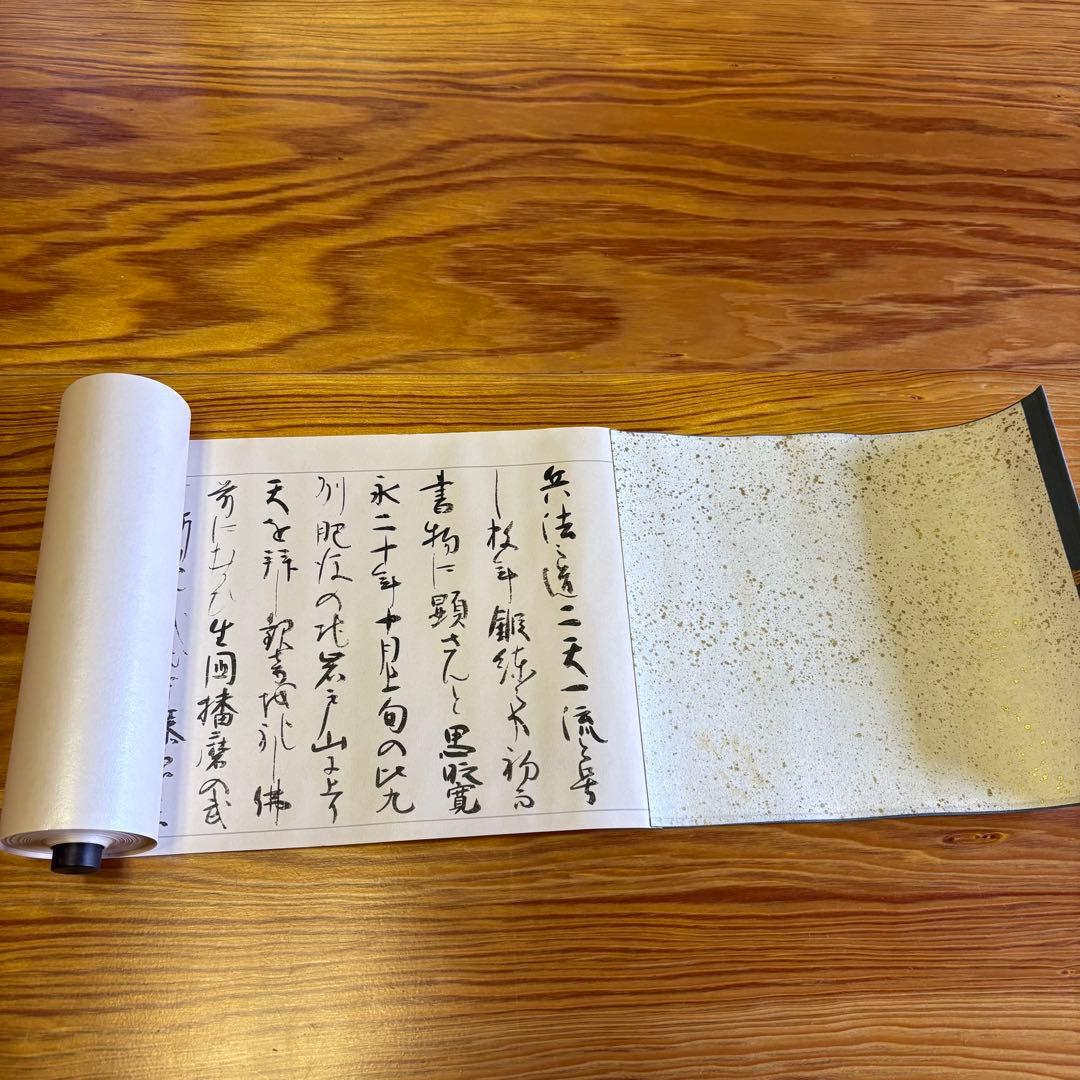 兵法之道二天一流と号
し数年鍛練之事初而
書物に顕さんと思時寛
永二十年十月上旬の比九
州肥後の地岩戸山に上り
天を拝し観音を礼し佛
前にむかひ生國播磨の武